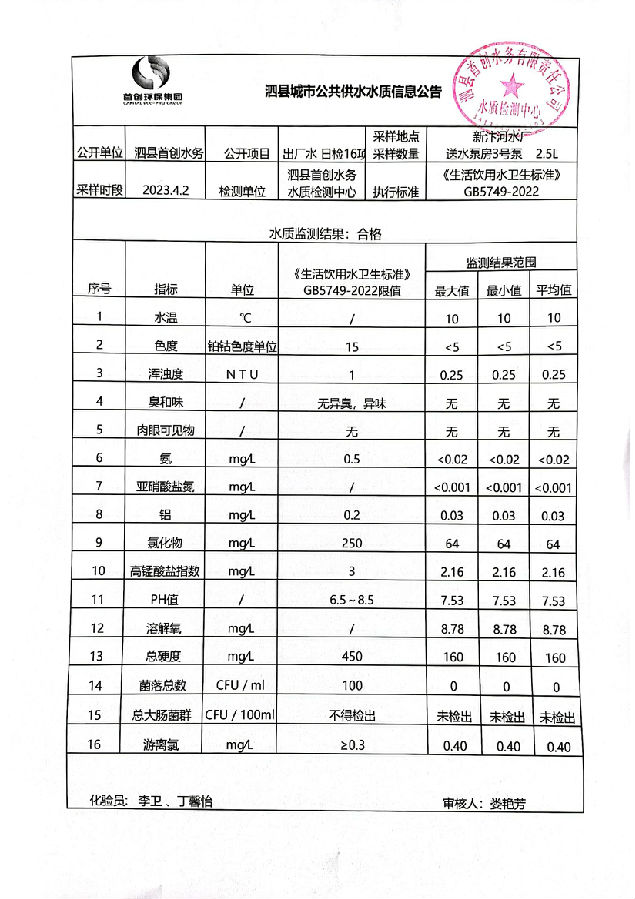 首创环保集团
泗县城市公共供水水质信息公告
泗县首创水务有限责任公司
水质检测中心
公开单位 泗县首创水务 公开项目 出厂水 日检16项 采样地点 新汴河水厂
采样数量 送水泵房3号泵 2.5L
采样时段 2023.4.2 检测单位 泗县首创水务 水质检测中心 执行标准 《生活饮用水卫生标准》 GB5749-2022
水质监测结果：合格
序号 指标 单位 《生活饮用水卫生标准》 GB5749-2022限值 监测结果范围
最大值 最小值 平均值
1 水温 ℃ / 10 10 10
2 色度 铂钴色度单位 15 <5 <5 <5
3 浑浊度 NTU 1 0.25 0.25 0.25
4 臭和味 / 无异臭，异味 无 无 无
5 肉眼可见物 / 无 无 无 无
6 氨 mg/L 0.5 <0.02 <0.02 <0.02
7 亚硝酸盐氮 mg/L / <0.001 <0.001 <0.001
8 铝 mg/L 0.2 0.03 0.03 0.03
9 氯化物 mg/L 250 64 64 64
10 高锰酸盐指数 mg/L 3 2.16 2.16 2.16
11 PH值 / 6.5~8.5 7.53 7.53 7.53
12 溶解氧 mg/L / 8.78 8.78 8.78
13 总硬度 mg/L 450 160 160 160
14 菌落总数 CFU / ml 100 0 0 0
15 总大肠菌群 CFU / 100ml 不得检出 未检出 未检出 未检出
16 游离氯 mg/L ≥0.3 0.40 0.40 0.40
化验员：李卫 、丁馨怡 审核人：娄艳芳